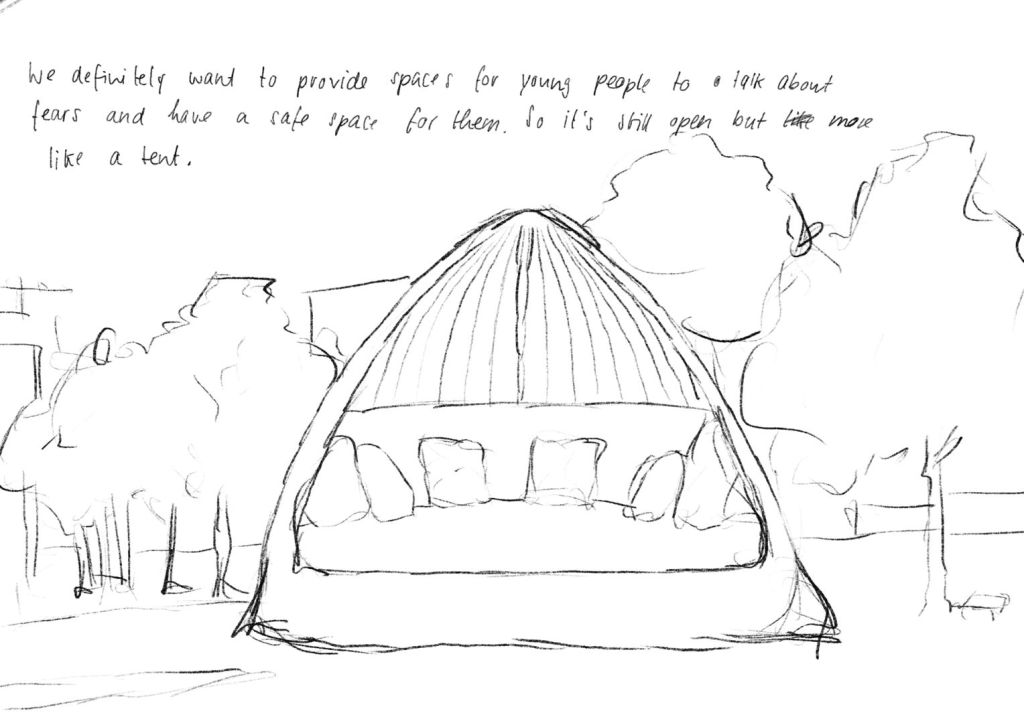 We definitely want to provide spaces for young people to talk about
fears and have a safe space for them. So it's still open but like more
like a tent.